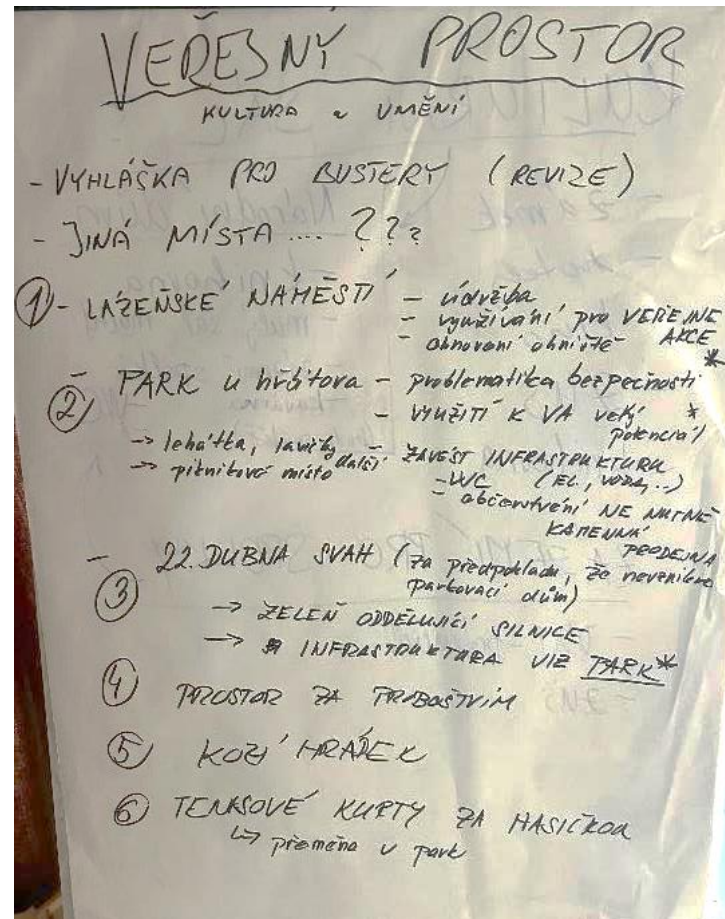 VEŘEJNÝ PROSTOR
KULTURA a UMĚNÍ
- VYHLÁŠKA PRO BUSTERY (REVIZE)
- JINÁ MÍSTA .... ???
① - LÁZEŇSKÉ NÁMĚSTÍ - údržba
- využívání pro VEŘEJNÉ AKCE *
- obnovení ohniště
② - PARK u hřbitova - problematika bezpečnosti
- VYUŽITÍ K VA velký potenciál *
-> lehátka, lavičky další - ZAVÉST INFRASTRUKTURU
-> piknikové místo - WC (EL., VODA, ..)
- občerstvení NE NUTNĚ
KAMENNÁ
PRODEJNA
③ - 22. DUBNA SVAH (za předpokladu, že nevznikne
parkovací dům)
-> ZELEŇ ODDĚLUJÍCÍ SILNICE
-> INFRASTRUKTURA VIZ PARK *
④ PROSTOR ZA PROBOŠTVÍM
⑤ KOZÍ HRÁDEK
⑥ TENISOVÉ KURTY ZA HASIČKOU
↳ přeměna v park